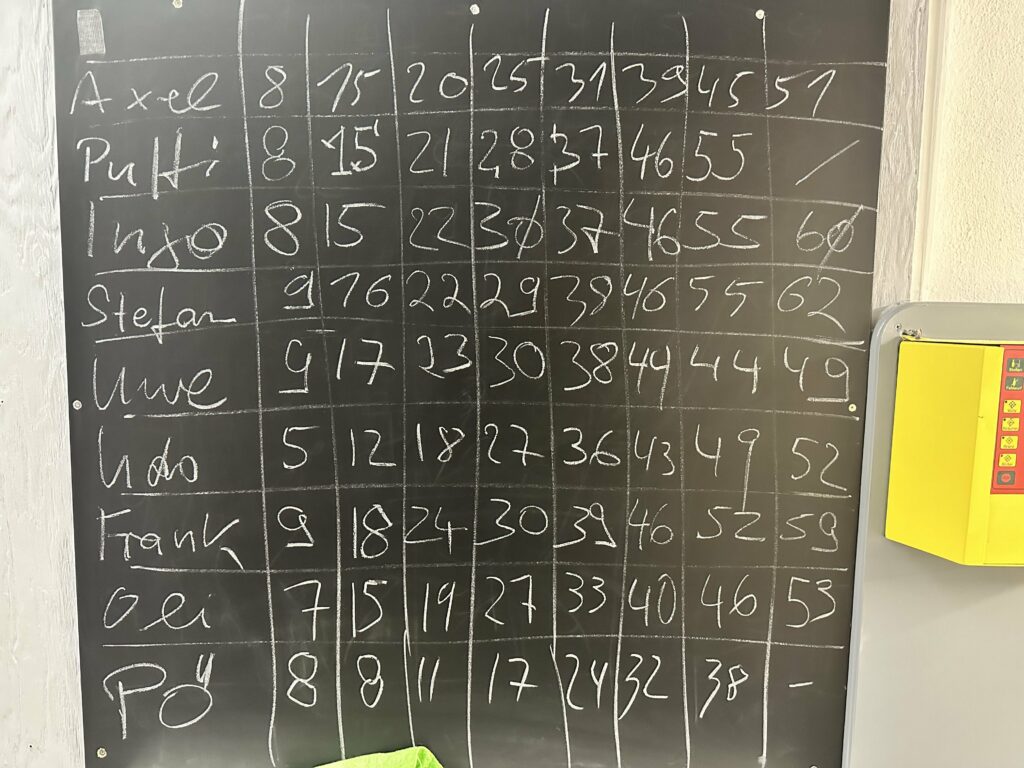 Axel 8 15 20 25 31 39 45 51
Puffi 8 15 21 28 37 46 55 /
Ingo 8 15 22 30 37 46 55 60
Stefan 9 16 22 29 39 46 55 62
Uwe 9 17 23 30 38 44 44 49
Udo 5 12 18 27 36 43 49 52
Frank 9 18 24 30 39 46 52 59
Oli 7 15 19 27 33 40 46 53
Pö 8 8 11 17 24 32 38 -